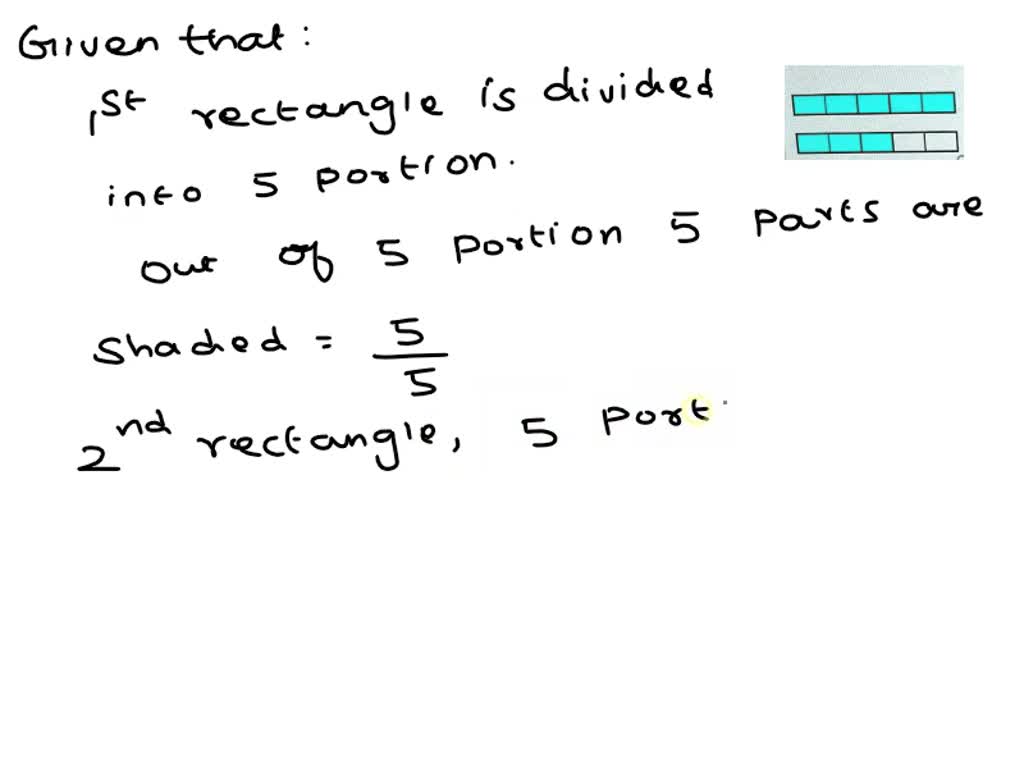 Given that:
1st rectangle is divided
into 5 portion.
out of 5 portion 5 parts are
shaded = 5/5
2nd rectangle, 5 port